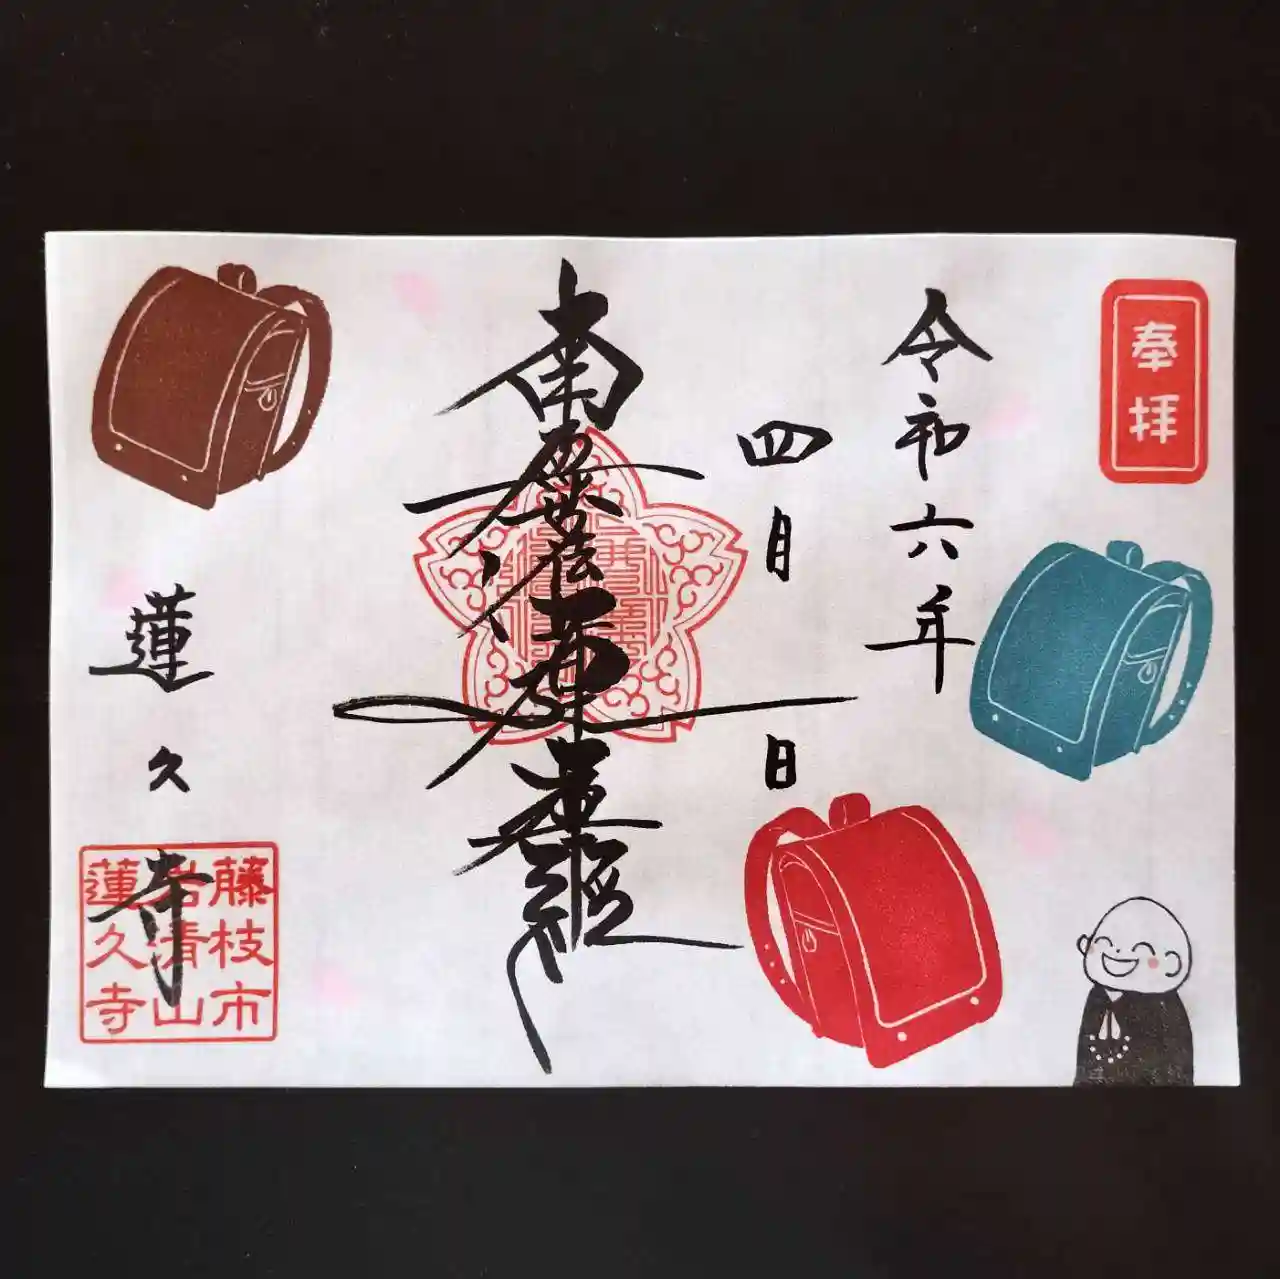 奉拝
令和六年
四月 日
南無妙法蓮華經
蓮久寺
藤枝市
清山
蓮久寺